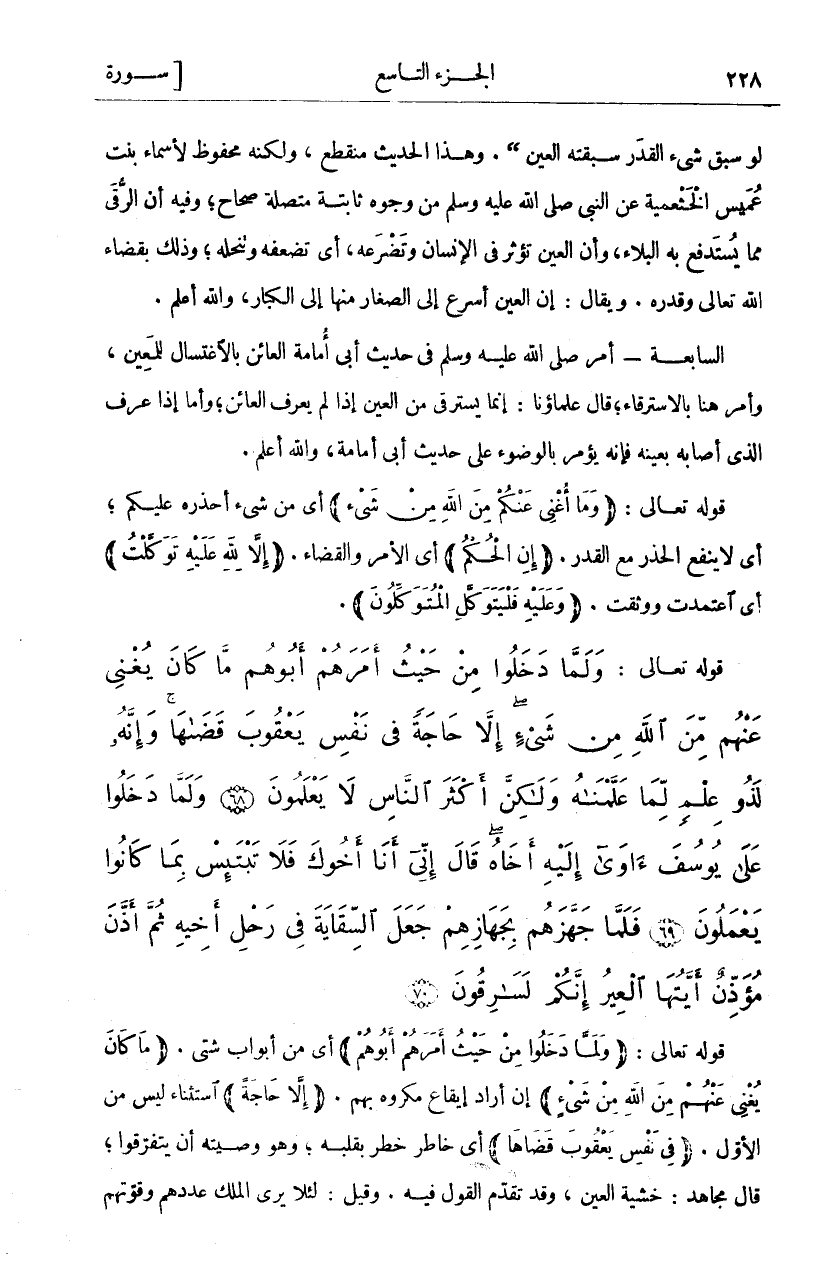 ٢٢٨ الجـــزء التــاسع [ ســـورة
لو سبق شىء القدَر سـبقته العين “ . وهــذا الحديث منقطع ، ولكنه محفوظ لأسماء بنت
عُمَيس الخَثْعمية عن النبى صلى الله عليه وسلم من وجوه ثابتــة متصلة صحاح؛ وفيه أن الرُّقَى
مما يُستَدفع به البلاء، وأن العين تؤثر فى الإنسان وتَضْرَعه، أى تضعفه وتُنحله ؛ وذلك بقضاء
الله تعالى وقدره . ويقال : إن العين أسرع إلى الصغار منها إلى الكبار، والله أعلم .
السابعـــة — أمر صلى الله عليـه وسلم فى حديث أبى أُمامة العائن بالاغتسال للمَعِين ،
وأمر هنا بالاسترقاء؛ قال علماؤنا : إنما يسترقى من العين إذا لم يعرف العائن؛ وأما إذا عرف
الذى أصابه بعينه فإنه يؤمر بالوضوء على حديث أبى أمامة، والله أعلم .
قوله تعـالى : ﴿ وَمَا أُغْنِى عَنْكُمْ مِنَ اللهِ مِنْ شَىْءٍ ﴾ أى من شىء أحذره عليكم ؛
أى لاينفع الحذر مع القدر . ﴿ إِنِ الْحُكْمُ ﴾ أى الأمر والقضاء . ﴿ إِلَّا لِلهِ عَلَيْهِ تَوَكَّلْتُ ﴾
أى ٱعتمدت ووثقت . ﴿ وَعَلَيْهِ فَلْيَتَوَكَّلِ الْمُتَوَكِّلُونَ ﴾ .
قوله تعـالى : وَلَمَّا دَخَلُوا مِنْ حَيْثُ أَمَرَهُمْ أَبُوهُم مَّا كَانَ يُغْنِى
عَنْهُم مِّنَ ٱللَّهِ مِن شَىْءٍ إِلَّا حَاجَةً فِى نَفْسِ يَعْقُوبَ قَضَىٰهَا ۚ وَإِنَّهُۥ
لَذُو عِلْمٍ لِّمَا عَلَّمْنَٰهُ وَلَٰكِنَّ أَكْثَرَ ٱلنَّاسِ لَا يَعْلَمُونَ ﴿٦٨﴾ وَلَمَّا دَخَلُوا
عَلَىٰ يُوسُفَ ءَاوَىٰٓ إِلَيْهِ أَخَاهُ ۖ قَالَ إِنِّىٓ أَنَا أَخُوكَ فَلَا تَبْتَئِسْ بِمَا كَانُوا
يَعْمَلُونَ ﴿٦٩﴾ فَلَمَّا جَهَّزَهُم بِجَهَازِهِمْ جَعَلَ ٱلسِّقَايَةَ فِى رَحْلِ أَخِيهِ ثُمَّ أَذَّنَ
مُؤَذِّنٌ أَيَّتُهَا ٱلْعِيرُ إِنَّكُمْ لَسَٰرِقُونَ ﴿٧٠﴾
قوله تعالى : ﴿ وَلَمَّا دَخَلُوا مِنْ حَيْثُ أَمَرَهُمْ أَبُوهُمْ ﴾ أى من أبواب شتى . ﴿ مَا كَانَ
يُغْنِى عَنْهُــمْ مِنَ اللهِ مِنْ شَىْءٍ ﴾ إن أراد إيقاع مكروه بهم . ﴿ إِلَّا حَاجَةً ﴾ ٱستثناء ليس من
الأوّل . ﴿ فِى نَفْسِ يَعْقُوبَ قَضَاهَا ﴾ أى خاطر خطر بقلبـه ؛ وهو وصـيته أن يتفرّقوا ؛
قال مجاهد : خشية العين ، وقد تقدّم القول فيـه . وقيل : لئلا يرى الملك عددهم وقوّتهم